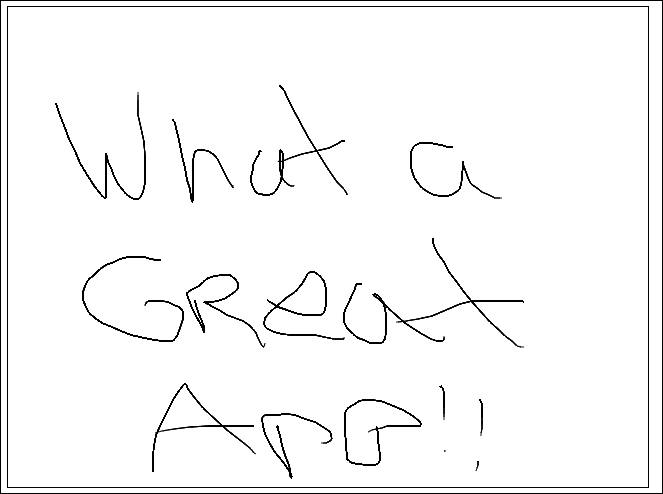 What a
GReat
App!!